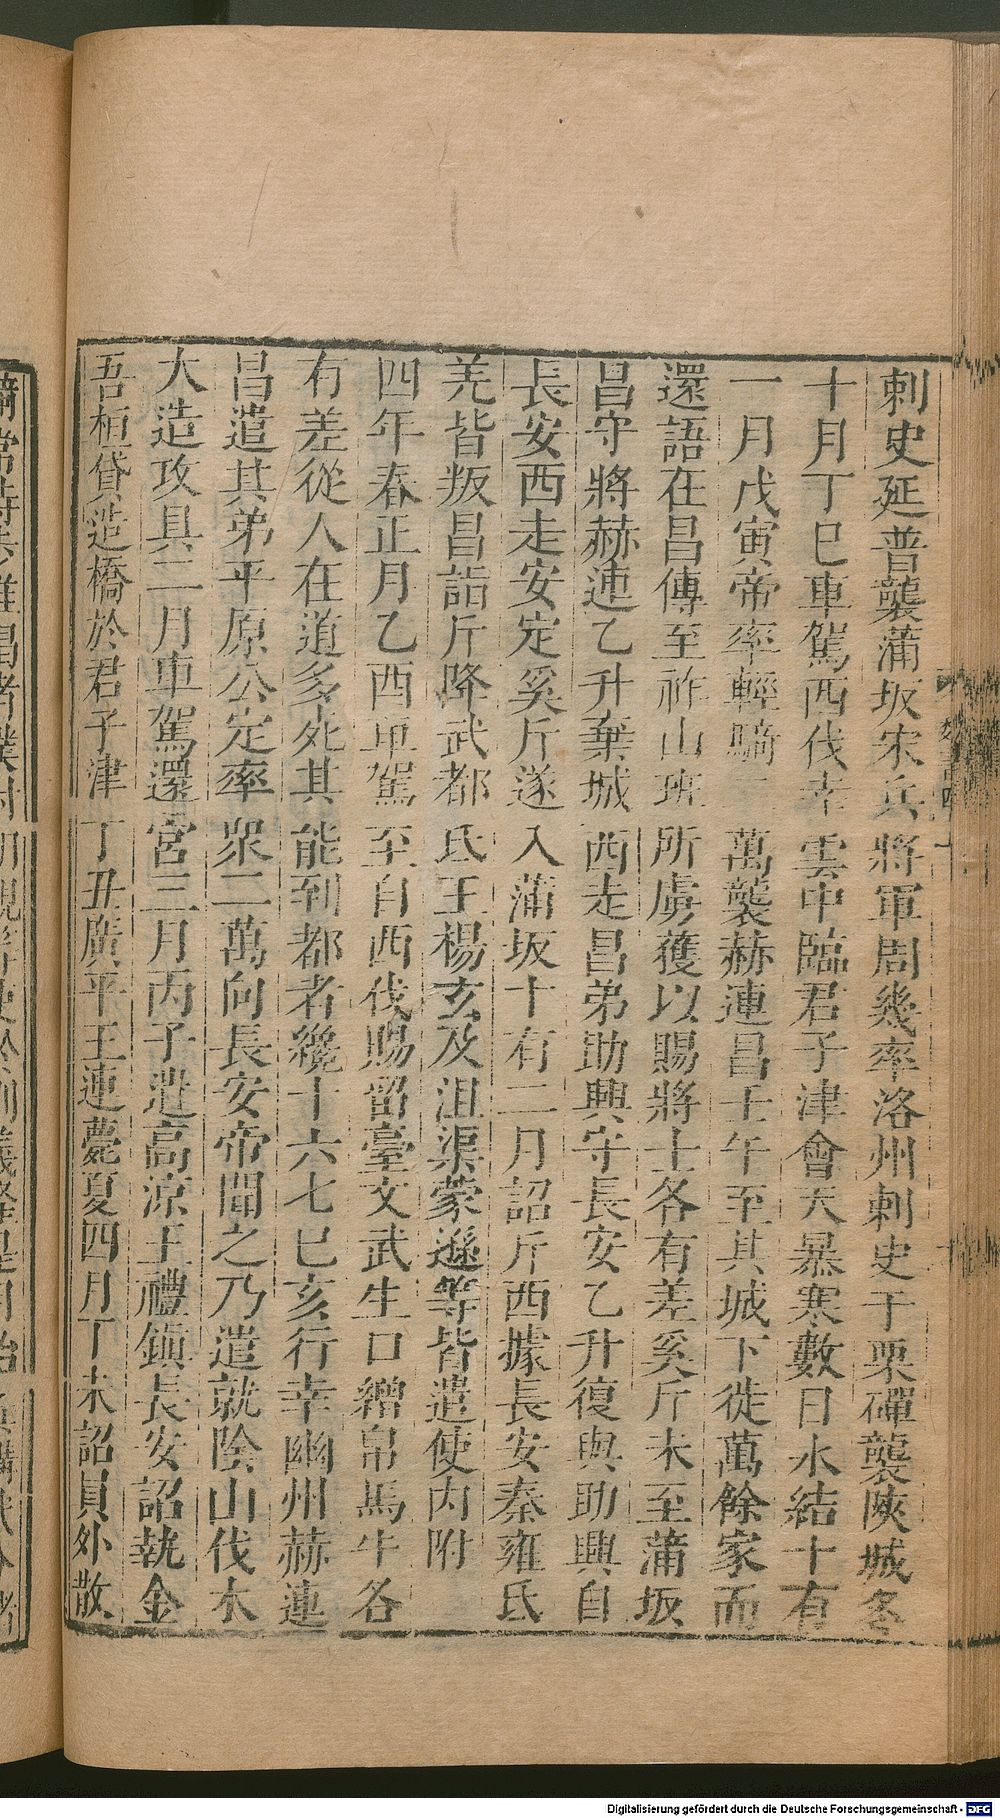 刺史延普襲蒲坂宋兵將軍周幾率洛州刺史于栗磾襲陝城冬
十月丁巳車駕西伐幸雲中臨君子津會天暴寒數日氷結十有
一月戊寅帝率輕騎二萬襲赫連昌壬午至其城下徙萬餘家而
還語在昌傳至祚山班所虜獲以賜將士各有差奚斤未至蒲坂
昌守將赫連乙升棄城西走昌弟助興守長安乙升復與助興自
長安西走安定奚斤遂入蒲坂十有二月詔斤西據長安秦雍氐
羌皆叛昌詣斤降武都氐王楊玄及沮渠蒙遜等皆遣使內附
四年春正月乙酉車駕至自西伐賜留臺文武生口繒帛馬牛各
有差從人在道多死其能到都者纔十六七巳亥行幸幽州赫連
昌遣其弟平原公定率衆二萬向長安帝聞之乃遣就陰山伐木
大造攻具二月車駕還宮三月丙子遣高涼王禮鎮長安詔執金
吾桓貸造橋於君子津丁丑廣平王連薨夏四月丁未詔員外散
Digitalisierung gefördert durch die Deutsche Forschungsgemeinschaft - DFG